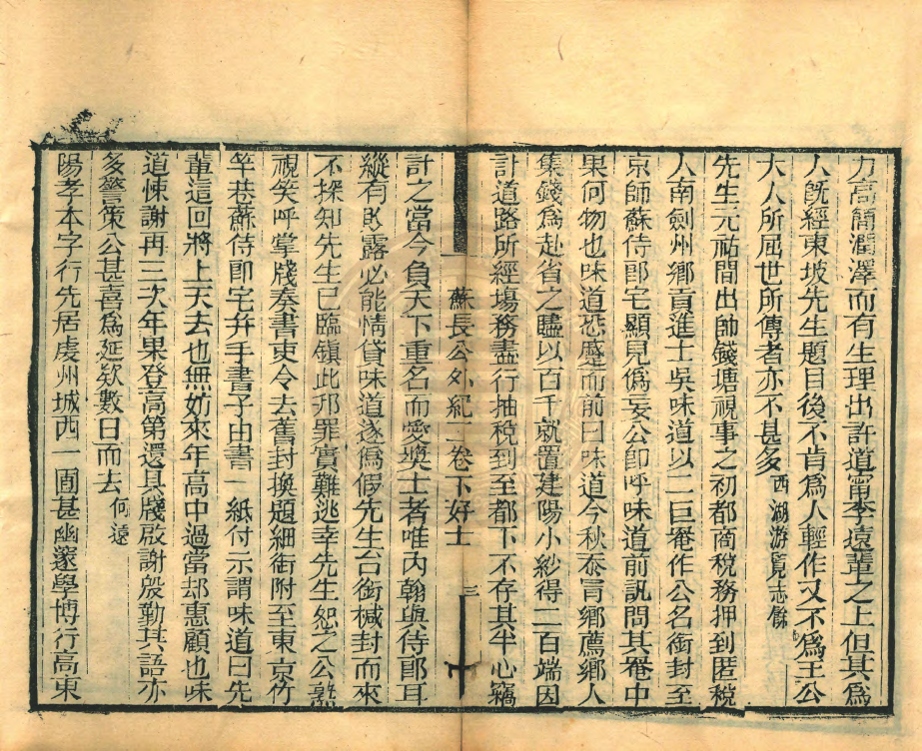 力高簡潤澤而有生理出許道甯李遠輩之上但其為
人旣經東坡先生題目後不肯爲人輕作又不爲王公
大人所屈世所傳者亦不甚多西湖游覽志餘
先生元祐間出帥錢塘視事之初都商稅務押到匿稅
人南劍州鄉貢進士吳味道以二巨菴作公名銜封至
京師蘇侍郎宅顯見僞妄公卽呼味道前訊問其菴中
果何物也味道恐蹙而前曰味道今秋忝冐鄉薦鄉人
集錢爲赴省之贐以百千就置建陽小紗得二百端因
計道路所經塲務盡行抽稅到至都下不存其半心竊
蘇長公外紀二卷下好士 三
計之當今負天下重名而愛奬士者唯內翰與侍郎耳
縱有敗露必能情貸味道遂爲假先生台銜緘封而來
不探知先生已臨鎭此邦罪實難逃幸先生恕之公熟
視笑呼掌牋奏書吏令去舊封換題細銜附至東京竹
竿巷蘇侍郎宅幷手書子由書一紙付示謂味道曰先
輩這回將上天去也無妨來年高中過當却惠顧也味
道悚謝再三次年果登高第還具牋啟謝殷勤其語亦
多警策公甚喜爲延欵數日而去何遠
陽孝本字行先居虔州城西一圃甚幽邃學博行高東